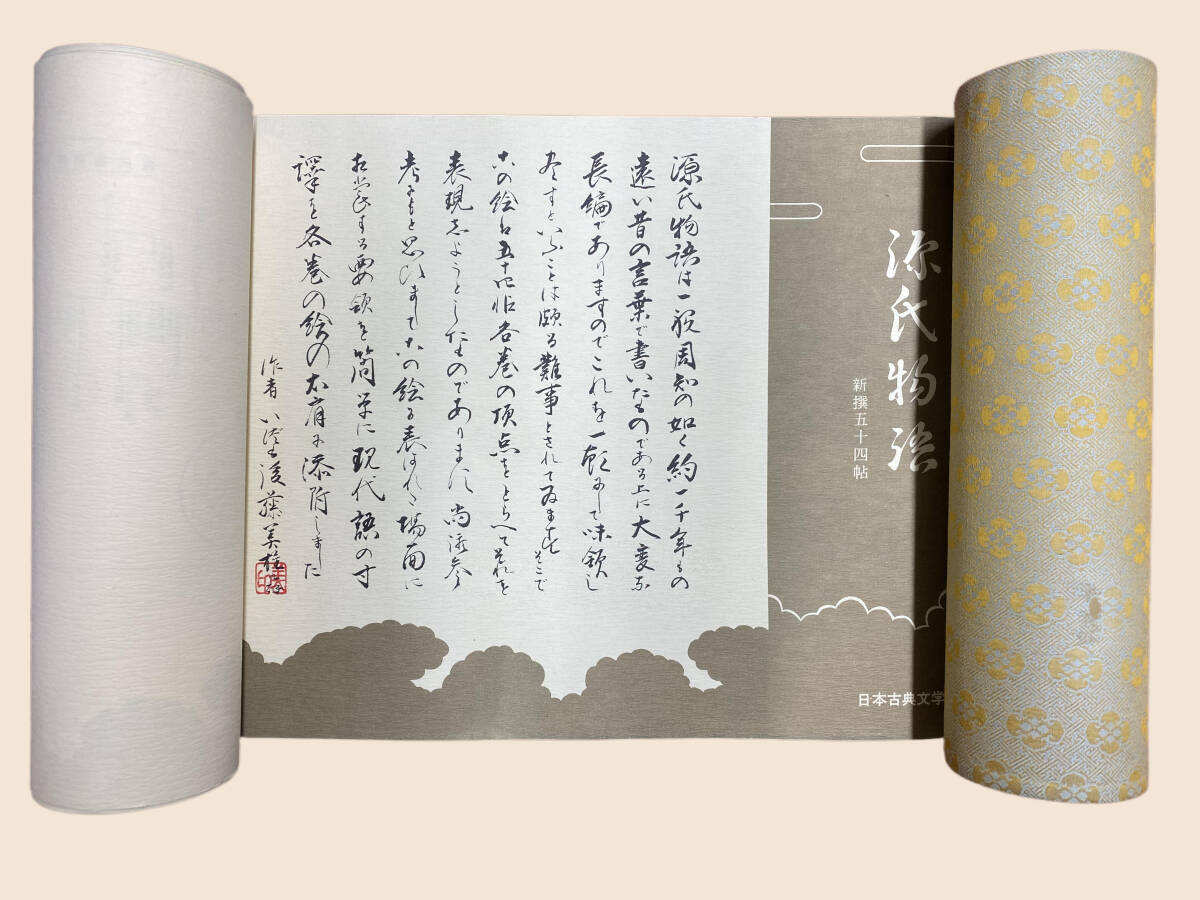 源氏物語
新撰五十四帖
日本古典文学
源氏物語は一般周知の如く約一千年もの
遠い昔の言葉で書いたものである上に大変な
長編でありますのでこれを一都にして味領し
尽すといふことは頗る難事とされてゐますそこで
この絵は五十四帖各巻の頂点をとらへてそれを
表現しようとしたものであります 尚御参
考にもと思ひましてこの絵に表はれた場面に
相当する要領を簡単に現代語の寸
譯を各巻の絵の右肩に添附しました
作者 後藤美